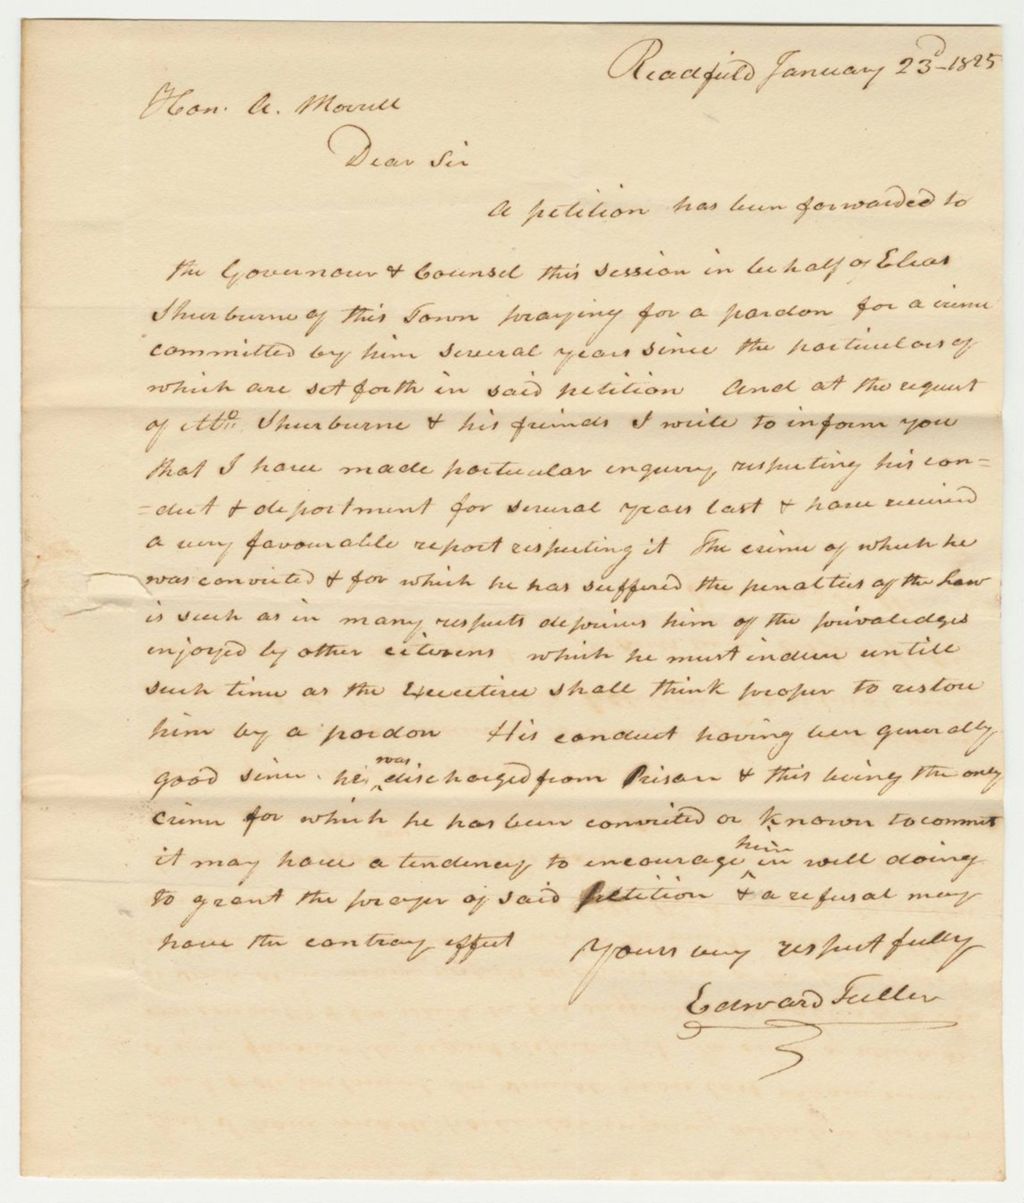 Readfield January 23d 1825
Hon. A. Morrill
Dear Sir
A petition has been forwarded to
the Governour & Counsel this session in behalf of Elias
Shurburne of this Town praying for a pardon for a crime
committed by him several years since the particulars of
which are set forth in said petition And at the request
of Shurburne & his friends I write to inform you
that I have made particular inquiry respecting his con=
=duct & deportment for several years last & have received
a very favourable report respecting it The crime of which he
was convicted & for which he has suffered the penalties of the Law
is such as in many respects deprives him of the privaledges
enjoyed by other citizens which he must indure untill
such time as the Executive shall think proper to restore
him by a pardon His conduct having been generally
good since he was discharged from Prison & this being the only
crime for which he has been convicted or known to commit
it may have a tendency to encourage him in well doing
to grant the prayer of said petition & a refusal may
have the contray effect Yours very respectfully
Edward Fuller